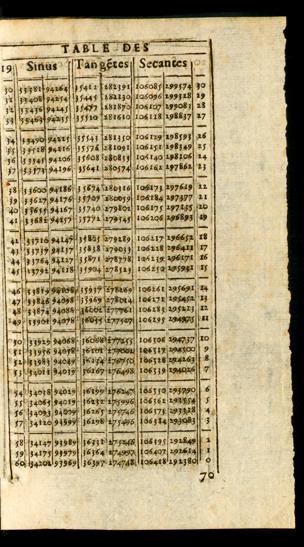 TABLE DES
19 Sinus Tangẽtes Secantes
30 33381 94264 35412 282391 106085 199574 30
31 33408 94254 35445 282130 106096 299328 29
32 33436 94245 281870 106107 299083 28
33 33463 94235 35510 281610 106118 298837 27
34 33490 35543 281350 298593 26
35 33518 94216 35576 281091 298349 25
36 33545 94206 35608 280833 106140 298106 24
37 33573 94196 35641 280574 106162 297862 23
38 33600 94186 35674 280316 106173 297619 22
39 33627 94176 35707 280059 106184 297377 21
40 33655 94167 35740 279802 106195 20
41 33682 94157 279545 106206 296893 19
42 33710 94147 35805 279289 106217 296652 18
43 33737 94137 35838 279033 106228 296411 17
44 33764 94127 35871 278778 106239 296171 16
45 33792 94118 35904 278523 106250 295931 15
46 33819 35937 278269 106261 295691 14
47 33846 94098 35969 278014 295452 13
48 33874 94088 277761 12
49 33901 94078 277507 11
50 33929 94068 36068 277255 106306 294737 10
51 33956 94058 36101 294500 9
52 33983 94049 294263 8
53 34011 94039 36167 276498 106339 294026 7
54 34038 94029 36199 276247 106350 293790 6
55 34065 94019 36232 275996 5
56 34093 94009 36265 275746 4
57 34120 93999 36298 275496 106384 293083 3
58 34147 93989 36331 275246 106395 292849 2
59 34175 93979 36364 274997 106407 292614 1
60 34202 93969 36397 274748 106418 292380 0
70